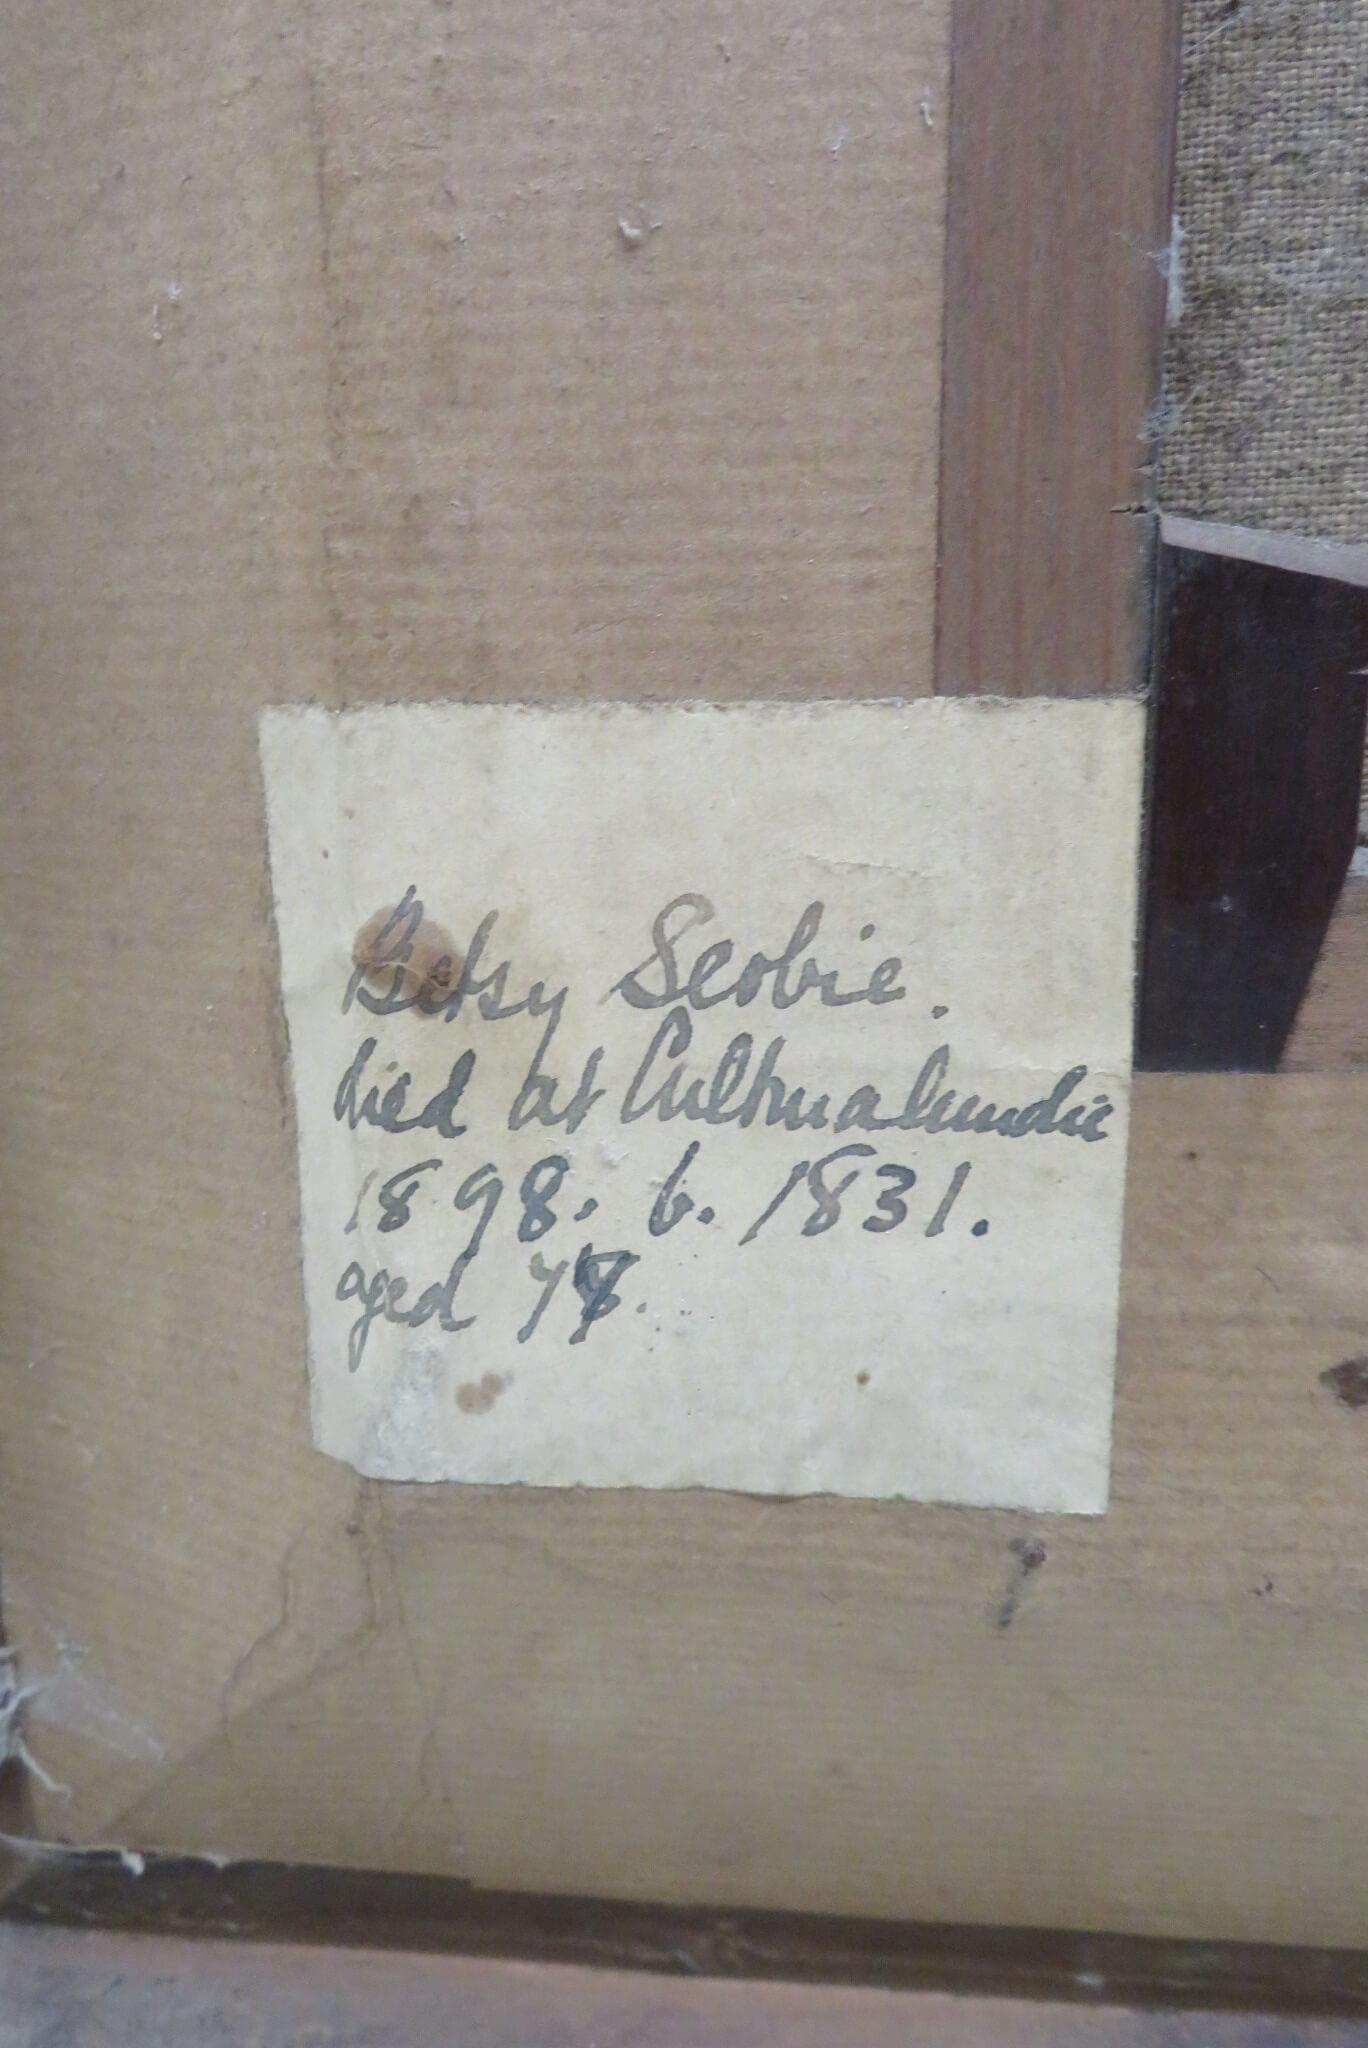 Betsy Scobie.
died at Cultmalundie
1898. b. 1831.
aged